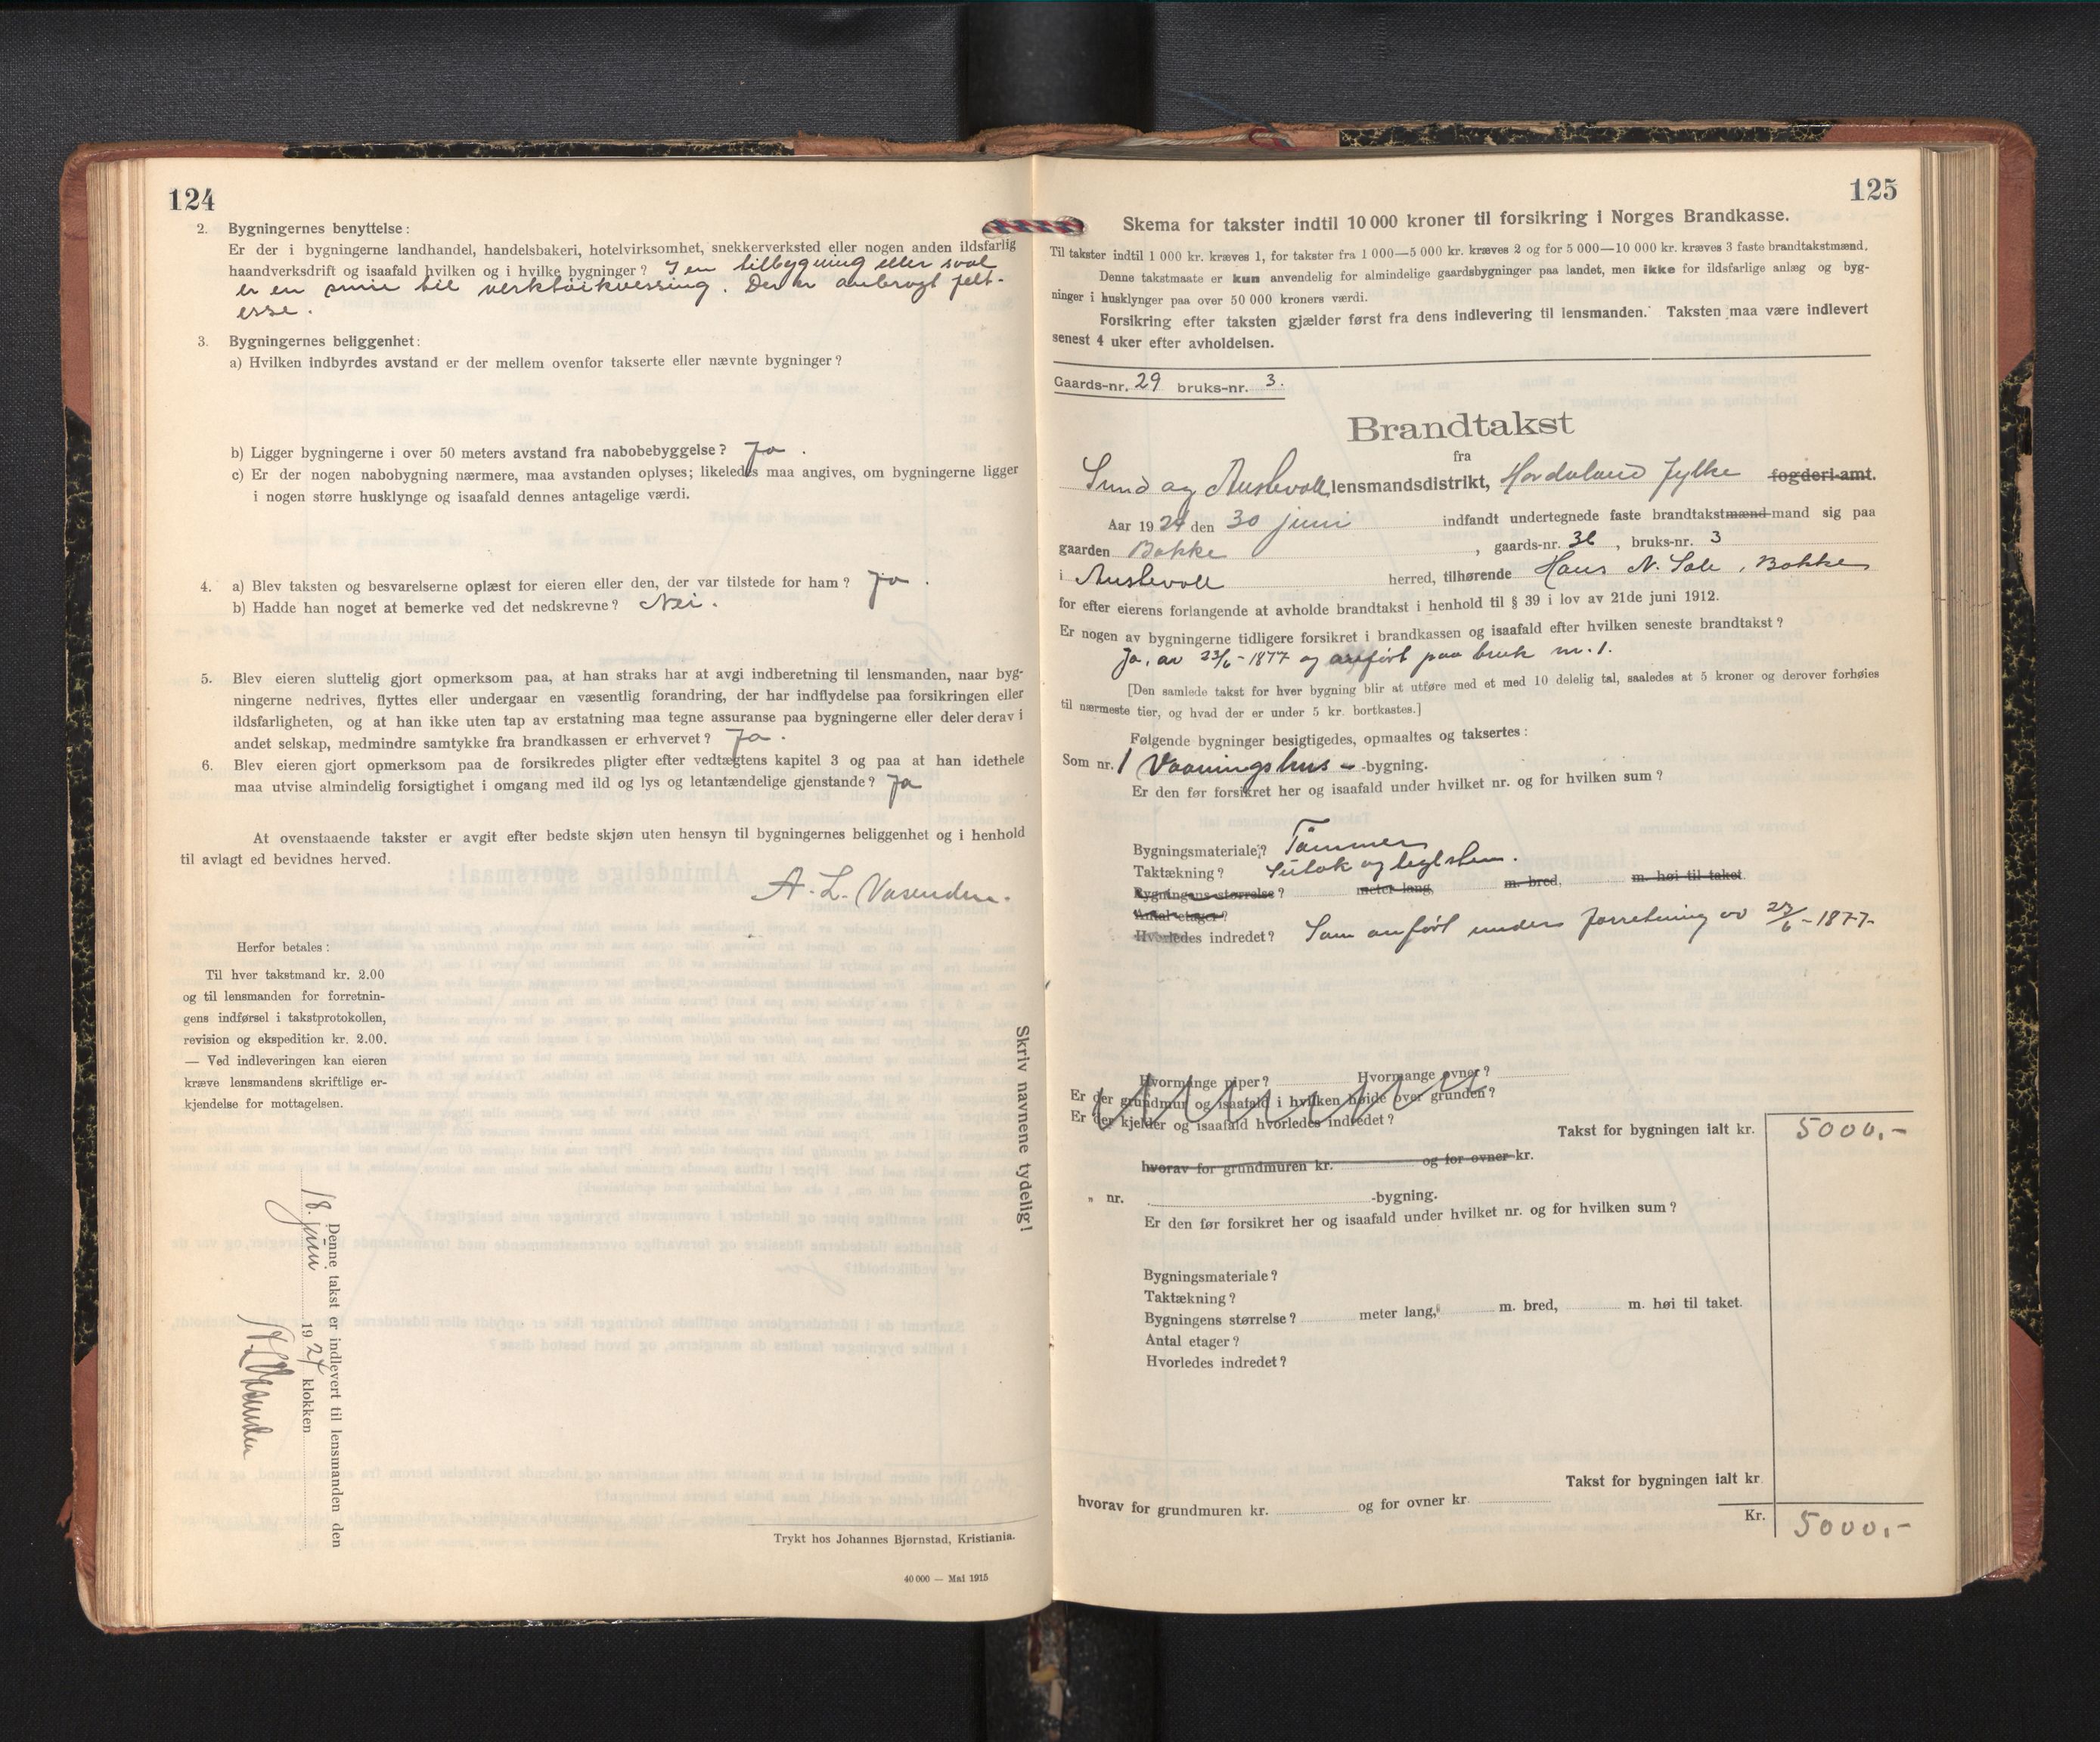 124
2. Bygningernes benyttelse:
Er der i bygningerne landhandel, handelsbakeri, hotelvirksomhet, snekkerverksted eller nogen anden ildsfarlig
haandverksdrift og isaafald hvilken og i hvilke bygninger? I en tilbygning eller sval
er en smie til verktöikvessing. Der er anbragt felt-
esse.
3. Bygningernes beliggenhet:
a) Hvilken indbyrdes avstand er der mellem ovenfor takserte eller nævnte bygninger?
b) Ligger bygningerne i over 50 meters avstand fra nabobebyggelse? Ja.
c) Er der nogen nabobygning nærmere, maa avstanden oplyses; likeledes maa angives, om bygningerne ligger
i nogen større husklynge og isaafald dennes antagelige værdi.
4. a) Blev taksten og besvarelserne oplæst for eieren eller den, der var tilstede for ham? Ja.
b) Hadde han noget at bemerke ved det nedskrevne? Nei.
5. Blev eieren sluttelig gjort opmerksom paa, at han straks har at avgi indberetning til lensmanden, naar byg-
ningerne nedrives, flyttes eller undergaar en væsentlig forandring, der har indflydelse paa forsikringen eller
ildsfarligheten, og at han ikke uten tap av erstatning maa tegne assuranse paa bygningerne eller deler derav i
andet selskap, medmindre samtykke fra brandkassen er erhvervet? Ja.
6. Blev eieren gjort opmerksom paa de forsikredes pligter efter vedtægtens kapitel 3 og paa at han idethele
maa utvise almindelig forsigtighet i omgang med ild og lys og letantændelige gjenstande? Ja
At ovenstaaende takster er avgit efter bedste skjøn uten hensyn til bygningernes beliggenhet og i henhold
til avlagt ed bevidnes herved.
A. L. Vasenden.
Herfor betales:
Til hver takstmand kr. 2.00
og til lensmanden for forretnin-
gens indførsel i takstprotokollen,
revision og ekspedition kr. 2.00.
— Ved indleveringen kan eieren
kræve lensmandens skriftlige er-
kjendelse for mottagelsen.
Skriv navnene tydelig!
Denne takst er indlevert til lensmanden den
18. juni 1924 klokken
A L Vasenden
Trykt hos Johannes Bjørnstad, Kristiania.
40 000 — Mai 1915
125
Skema for takster indtil 10 000 kroner til forsikring i Norges Brandkasse.
Til takster indtil 1 000 kr. kræves 1, for takster fra 1 000—5 000 kr. kræves 2 og for 5 000—10 000 kr. kræves 3 faste brandtakstmænd.
Denne takstmaate er kun anvendelig for almindelige gaardsbygninger paa landet, men ikke for ildsfarlige anlæg og byg-
ninger i husklynger paa over 50 000 kroners værdi.
Forsikring efter taksten gjælder først fra dens indlevering til lensmanden. Taksten maa være indlevert
senest 4 uker efter avholdelsen.
Gaards-nr. 29 bruks-nr. 3.
Brandtakst
fra
Sund og Austevoll lensmandsdistrikt, Hordaland Fylke fogderi-amt.
Aar 1924 den 30 juni indfandt undertegnede faste brandtakstmænd-mand sig paa
gaarden Bakke, gaards-nr. 36, bruks-nr. 3
i Austevoll herred, tilhørende Hans N. Sale, Bakke
for efter eierens forlangende at avholde brandtakst i henhold til § 39 i lov av 21de juni 1912.
Er nogen av bygningerne tidligere forsikret i brandkassen og isaafald efter hvilken seneste brandtakst?
Ja, av 23/6-1877 og anfört paa bruk nr. 1.
[Den samlede takst for hver bygning blir at utføre med et med 10 delelig tal, saaledes at 5 kroner og derover forhøies
til nærmeste tier, og hvad der er under 5 kr. bortkastes.]
Følgende bygninger besigtigedes, opmaaltes og taksertes:
Som nr. 1 Vaaningshus -bygning.
Er den før forsikret her og isaafald under hvilket nr. og for hvilken sum?
Bygningsmateriale? Tömmer
Taktækning? og teglsten.
Bygningens størrelse? meter lang, m. bred, m. høi til taket.
Antal etager?
Hvorledes indredet? Som anfört under forretning av 23/6-1877.
Hvormange piper? Hvormange ovner?
Er der grundmur og isaafald i hvilken høide over grunden?
Er der kjelder og isaafald hvorledes indredet?
Takst for bygningen ialt kr. 5000.-
hvorav for grundmuren kr. og for ovner kr.
" nr. -bygning.
Er den før forsikret her og isaafald under hvilket nr. og for hvilken sum?
Bygningsmateriale?
Taktækning?
Bygningens størrelse? meter lang, m. bred, m. høi til taket.
Antal etager?
Hvorledes indredet?
Takst for bygningen ialt kr.
hvorav for grundmuren kr. og for ovner kr.
Kr. 5000.-